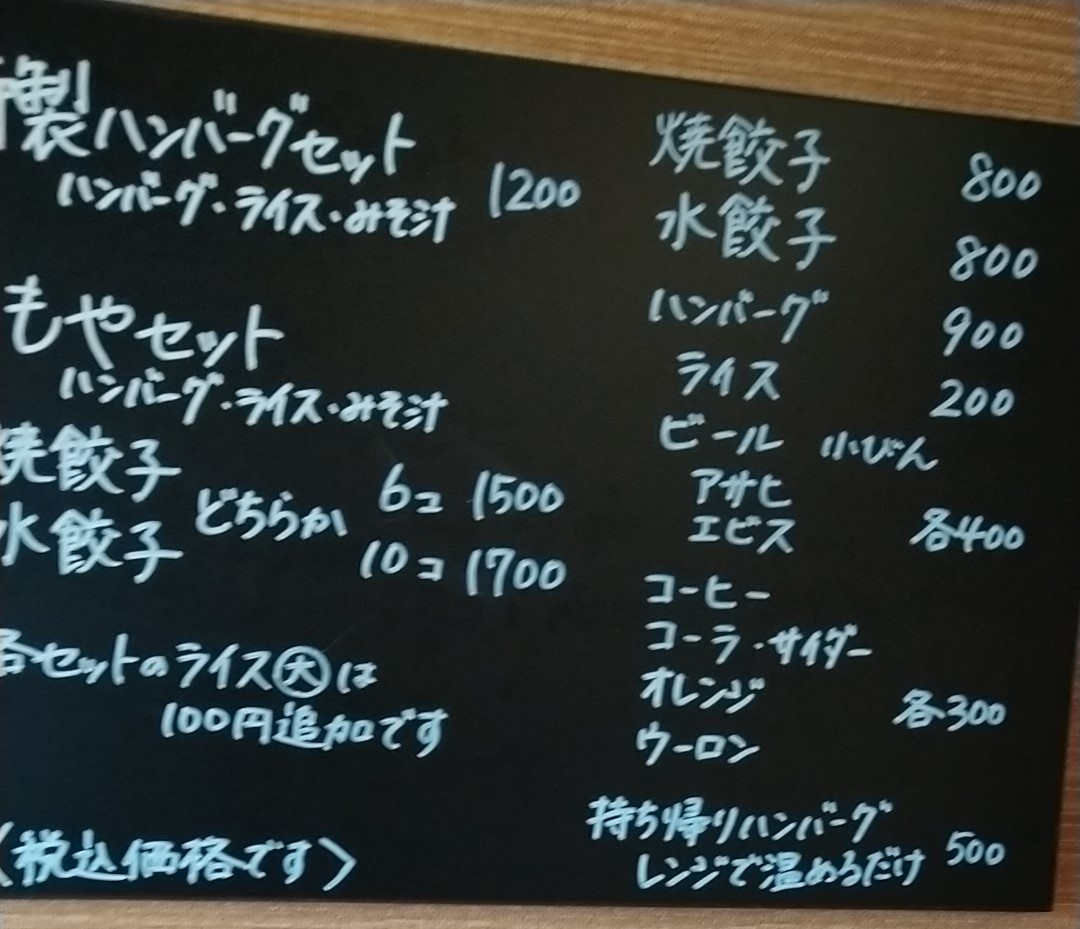 製ハンバーグセット
ハンバーグ・ライス・みそ汁 1200
もやセット
ハンバーグ・ライス・みそ汁
焼餃子
水餃子 どちらか 6コ 1500
10コ 1700
各セットのライス㊅は
100円追加です
〈税込価格です〉
焼餃子 800
水餃子 800
ハンバーグ 900
ライス 200
ビール 小びん
アサヒ
エビス 各400
コーヒー
コーラ・サイダー
オレンジ 各300
ウーロン
持ち帰りハンバーグ
レンジで温めるだけ 500